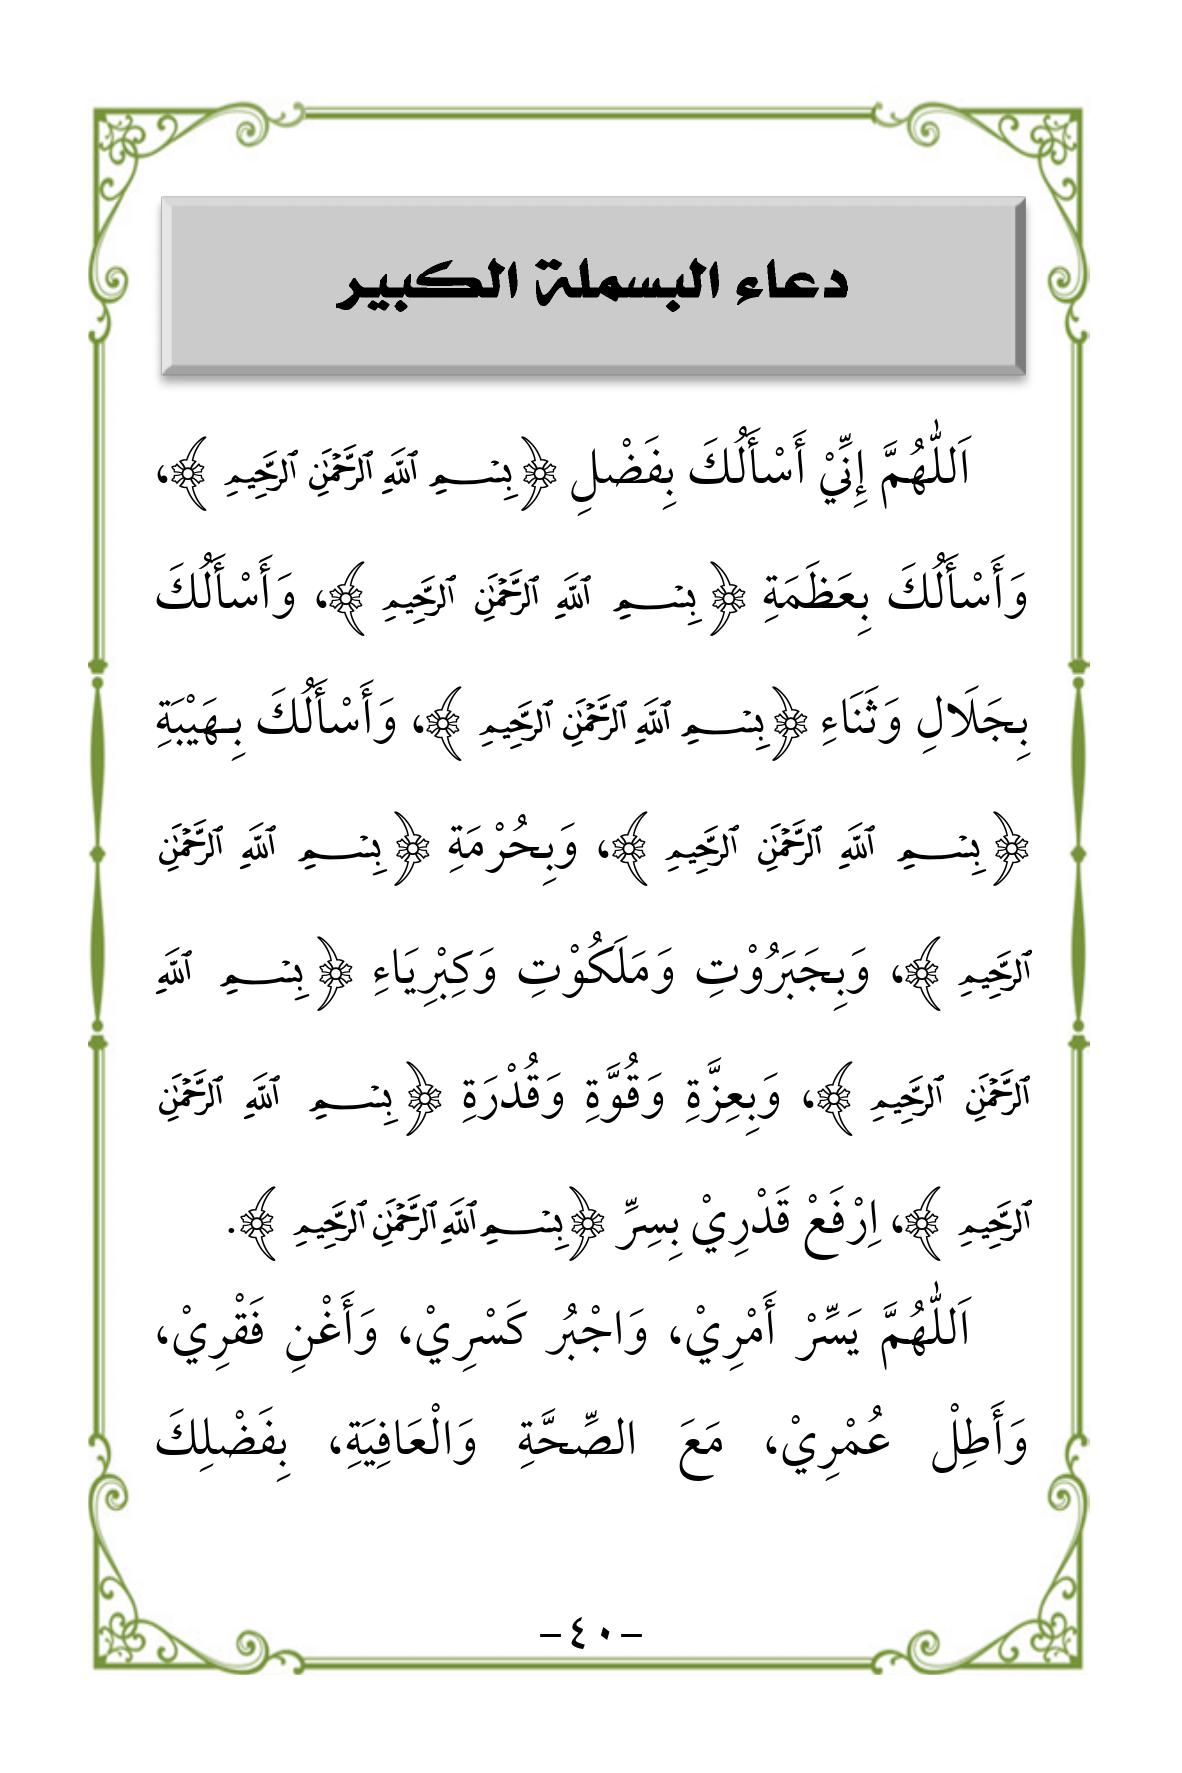 دعاء البسملة الكبير
اَللّٰهُمَّ إِنِّيْ أَسْأَلُكَ بِفَضْلِ ﴿بِسْمِ ٱللَّهِ ٱلرَّحْمَٰنِ ٱلرَّحِيمِ﴾،
وَأَسْأَلُكَ بِعَظَمَةِ ﴿بِسْمِ ٱللَّهِ ٱلرَّحْمَٰنِ ٱلرَّحِيمِ﴾، وَأَسْأَلُكَ
بِجَلَالِ وَثَنَاءِ ﴿بِسْمِ ٱللَّهِ ٱلرَّحْمَٰنِ ٱلرَّحِيمِ﴾، وَأَسْأَلُكَ بِهَيْبَةِ
﴿بِسْمِ ٱللَّهِ ٱلرَّحْمَٰنِ ٱلرَّحِيمِ﴾، وَبِحُرْمَةِ ﴿بِسْمِ ٱللَّهِ ٱلرَّحْمَٰنِ
ٱلرَّحِيمِ﴾، وَبِجَبَرُوْتِ وَمَلَكُوْتِ وَكِبْرِيَاءِ ﴿بِسْمِ ٱللَّهِ
ٱلرَّحْمَٰنِ ٱلرَّحِيمِ﴾، وَبِعِزَّةِ وَقُوَّةِ وَقُدْرَةِ ﴿بِسْمِ ٱللَّهِ ٱلرَّحْمَٰنِ
ٱلرَّحِيمِ﴾، اِرْفَعْ قَدْرِيْ بِسِرِّ ﴿بِسْمِ ٱللَّهِ ٱلرَّحْمَٰنِ ٱلرَّحِيمِ﴾.
اَللّٰهُمَّ يَسِّرْ أَمْرِيْ، وَاجْبُر كَسْرِيْ، وَأَغْنِ فَقْرِيْ،
وَأَطِلْ عُمْرِيْ، مَعَ الصِّحَّةِ وَالْعَافِيَةِ، بِفَضْلِكَ
–٤٠–